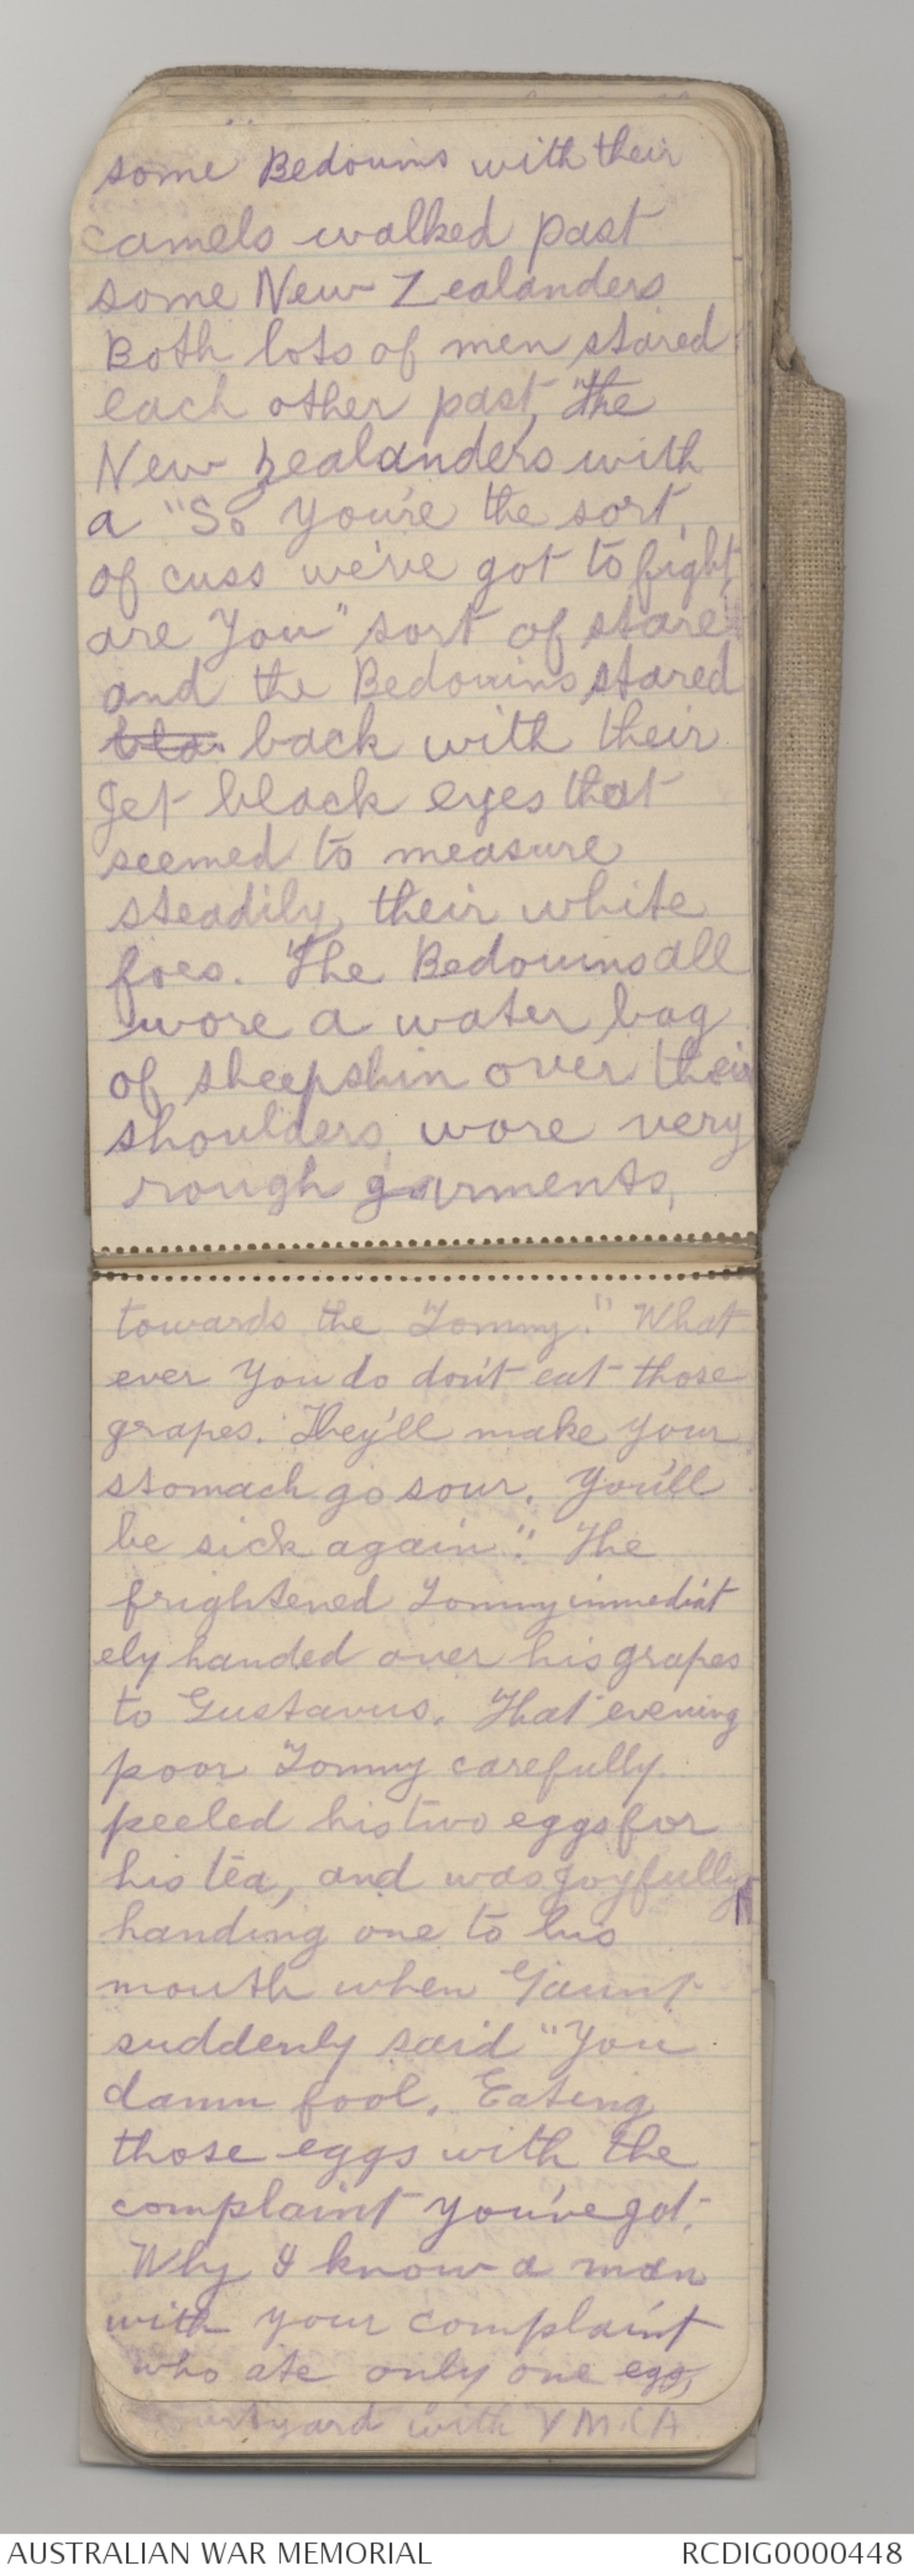 some Bedouins with their
camels walked past
some New Zealanders
Both lots of men stared
each other past, The
New Zealanders with
a "So you're the sort
of cuss we've got to fight,
are you" sort of stare
and the Bedouins stared
bla. back with their
jet black eyes that
seemed to measure
steadily, their white
foes. The Bedouins all
wore a water bag
of sheepskin over their
shoulders, wore very
rough garments,
towards the Tommy." What
ever you do don't eat those
grapes. They'll make your
stomach go sour. You'll
be sick again". The
frightened Tommy immediat
ely handed over his grapes
to Gustavus. That evening
poor Tommy carefully
peeled his two eggs for
his tea, and was joyfully
handing one to his
mouth when Gaunt
suddenly said "You
damn fool. Eating
those eggs with the
complaint you've got.
Why I know a man
with your complaint
who ate only one egg,
with Y M.C.A
AUSTRALIAN WAR MEMORIAL
RCDIG0000448